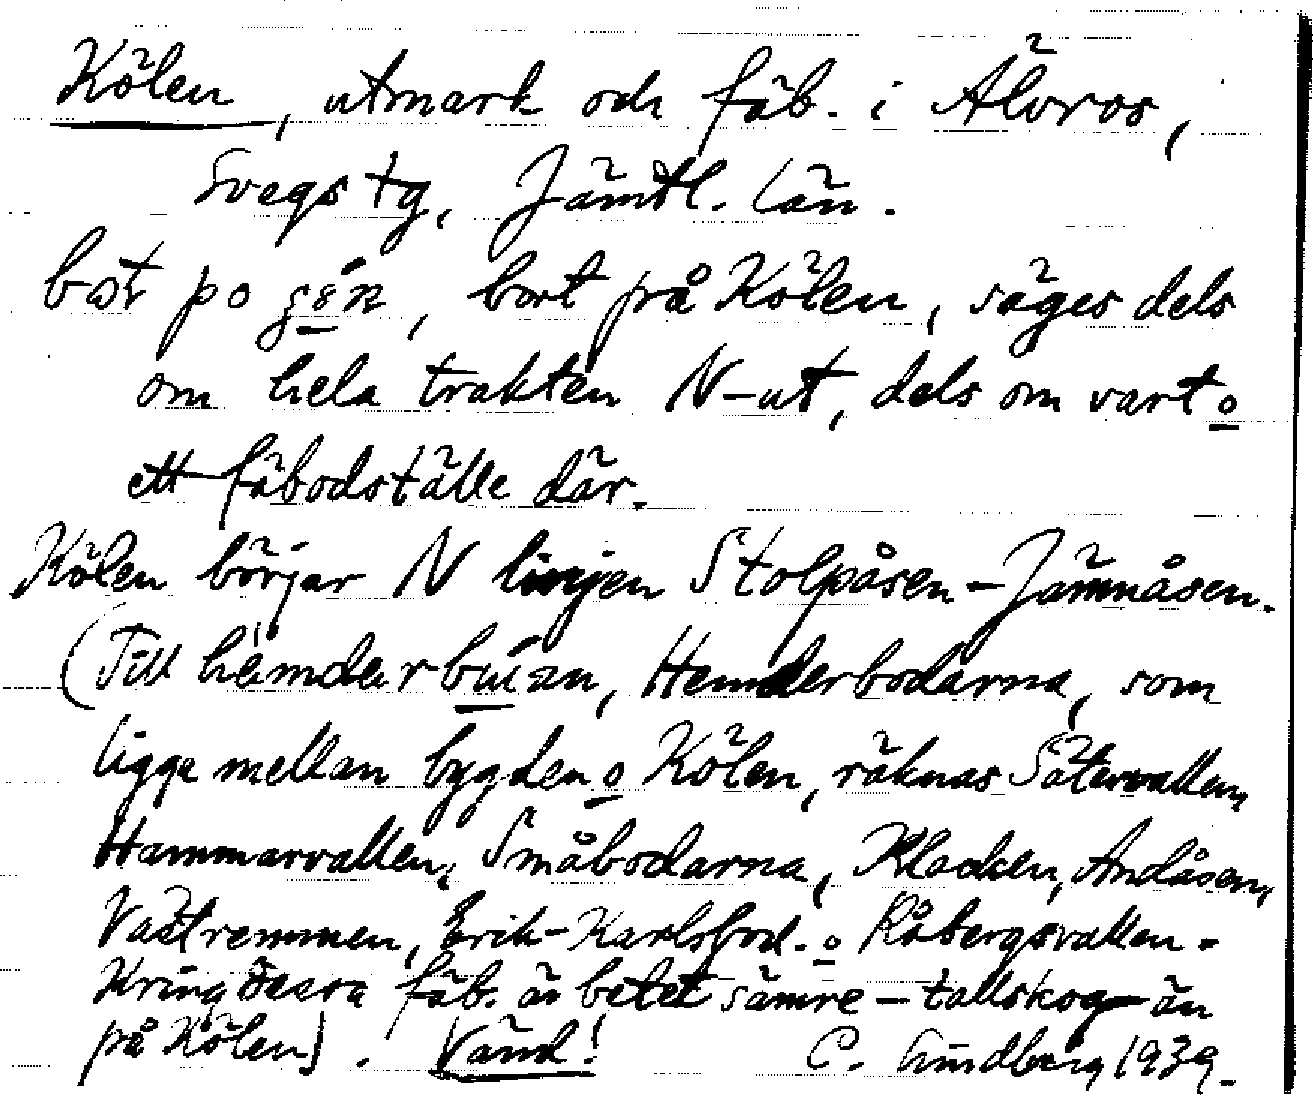 Kölen, utmark och fäb. i Älvros,
Svegs tg, Jämtl. län.
bot po , bort på Kölen, säges dels
om hela trakten N-ut, dels om vart o
ett fäbodställe där.
Kölen börjar N linjen Stolpåsen - Jämnåsen.
(Till , Hemderbodarna, som
ligga mellan bygden o Kölen, räknas Sätervallen,
Hammarvallen, Småbodarna, Klacken, Andåsen,
Västremmen, Erik-Karlsbod. o Råbergsvallen.
Kring dessa fäb. är betet sämre - tallskog - än
på Kölen). Vänd! C. Lindberg 1939.